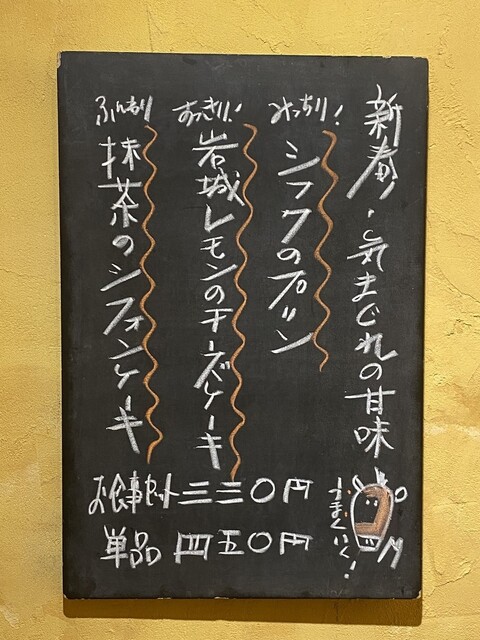 新春・気まぐれの甘味
みっちり!
シフクのプリン
すっきり!
岩城レモンのチーズケーキ
ふんわり
抹茶のシフォンケーキ
お食事セット三三〇円
単品 四五〇円
うまくいく!